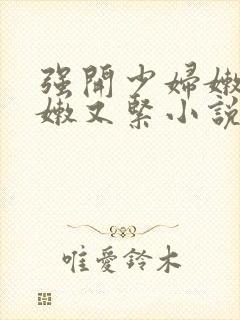 强開少婦嫩
嫩又緊小說
唯愛鈴木